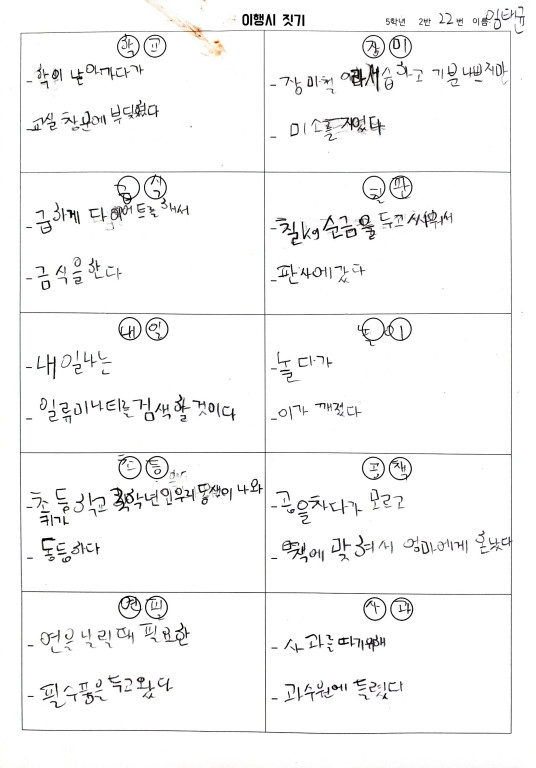 이행시 짓기
5학년 2반 22번 이름 임태균
학교
- 학이 날아가다가
- 교실 창문에 부딪혔다
장미
- 장미철 습하고 기분 나쁘지만
- 미소를 지었다
급식
- 급하게 다이어트를 해서
- 금식을 한다
칠판
- 칠kg 순금을 두고 싸워서
- 판사에 갔다
내일
- 내일 나는
- 일류미나티를 검색할 것이다
놀이
- 놀다가
- 이가 깨졌다
초등
- 초등학교 학년인 우리 동생이 나와
키가
- 동등하다
공책
- 공을 차다가 모르고
- 책에 맞혀서 엄마에게 혼났다
연필
- 연을 날릴때 필요한
- 필수품을 두고 왔다
사과
- 사과를 따기위해
- 과수원에 들렸다